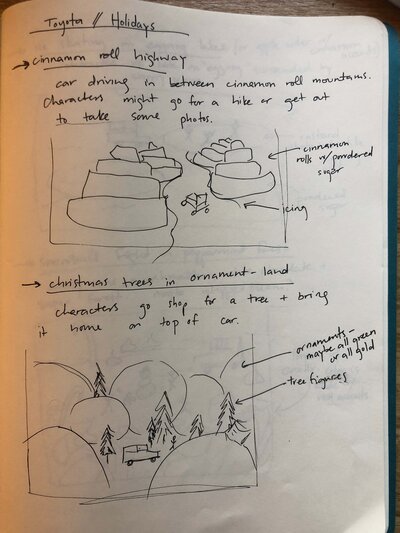 Toyota // Holidays
cinnamon roll highway
car driving in between cinnamon roll mountains.
Characters might go for a hike or get out
to take some photos.
cinnamon
rolls w/ powdered
sugar
icing
christmas trees in ornament-land
characters go shop for a tree + bring
it home on top of car.
ornaments-
maybe all green
or all gold
tree figures